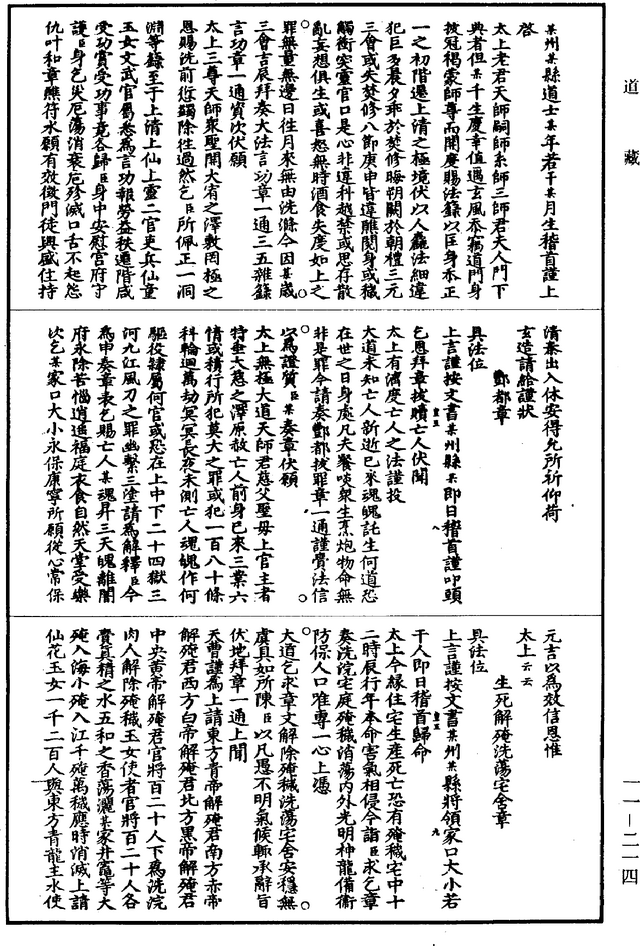 道藏
某州某縣道士某年若干某月生稽首謹上
啓
太上老君天師嗣師系師三師君夫人門下
典者但某千生慶幸值遇玄風忝竊道門身
披冠褐蒙師尊而開慶賜法籙以臣身忝正
一之初階遷上清之極境伏以人麤法細違
犯巨多晨夕乖於焚修晦朔闕於朝禮三元
三會或失焚修八節庚申皆違醮閱身或穢
觸衝突靈官口是心非違科越禁或思存散
亂妄想俱生或喜怒無時酒食失度如上之
罪無量無邊日往月來無由洗滌今因某歲
三會吉辰拜奏大法言功章一通三五雜籙
言功章一通質次伏願
太上三尊天師衆聖開大宥之澤敷罔極之
恩賜洗前愆蠲除往過然乞臣所佩正一洞
淵等籙至于上清上仙上靈二官吏兵仙童
玉女文武官屬悉爲言功報勞益秩遷階咸
受功賞受功事竟各歸臣身中安慰宫府守
護臣身乞災厄蕩消衰危殄滅口舌不起怨
仇叶和章醮符水願有效徵門徒興盛住持
清泰出入休安得允所祈仰荷
玄造請給謹狀
酆都章
具法位
上言謹按文書某州縣某即日稽首謹叩頭
乞恩拜章拔贖亡人伏聞
太上有濟度亡人之法謹投
大道未知亡人新逝已來魂魄託生何道恐
在世之日身處凡夫饕啖衆生烹炮物命無
非是罪今請奏酆都拔罪章一通謹賫法信
以爲證質臣某奏章伏願
太上無極大道天師君慈父聖母上官主者
特垂大慈之澤原赦亡人前身已來三業六
情或積行所犯莫大之罪或犯一百八十條
科輪迴萬劫冥冥長夜未測亡人魂魄作何
驅役隷屬何官或恐在上中下二十四獄三
河九江風刀之罪幽繫三塗請爲解釋臣今
爲申奏章表乞賜亡人某魂昇三天魄離闇
府永除苦惱逍遥福庭衣食自然天堂受樂
次乞某家口大小永保康寧所願從心常保
元吉以爲效信恩惟
太上云云
生死解殗洗蕩宅舍章
具法位
上言謹按文書某州某縣將領家口大小若
干人即日稽首歸命
太上今緣住宅生産死亡恐有殗穢宅中十
二時辰行年本命害氣相侵今詣臣求乞章
奏洗浣宅庭殗穢消蕩内外光明神龍備衛
防保人口唯專一心上憑
大道乞求章文解除殗穢洗蕩宅舍安穩無
虞具如所陳臣以凡愚不明氣候輒承辭旨
伏地拜章一通上聞
天曹謹爲上請東方青帝解殗君南方赤帝
解殗君西方白帝解殗君北方黑帝解殗君
中央黄帝解殗君官將百二十人下爲洗浣
肉人解除殗穢玉女使者官將百二十人各
賫真精之水五和之香蕩灑某家井竈等大
殗入海小殗入江千殗萬穢應時消滅上請
仙花玉女一千二百人與東方青龍主水使
一一—二一四